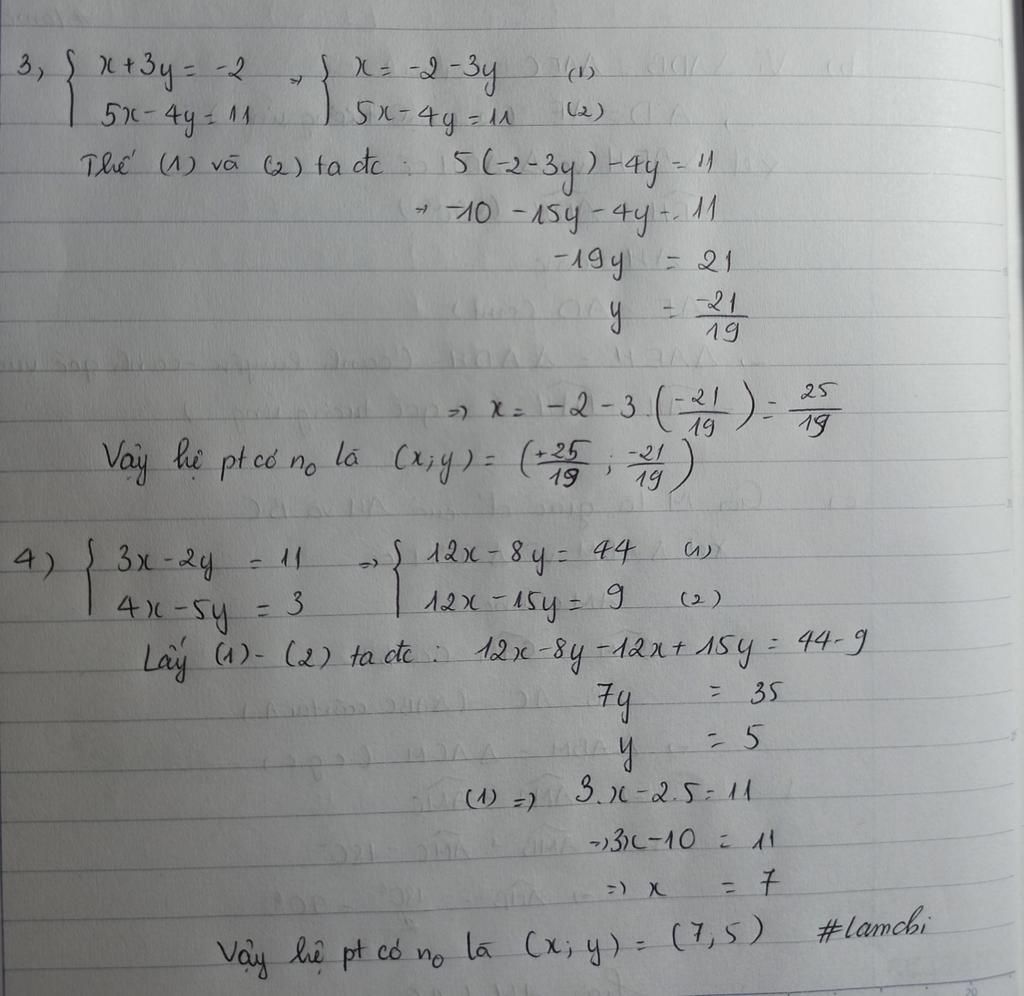 3, { x + 3y = -2 → { x = -2 - 3y (1)
5x - 4y = 11 5x - 4y = 11 (2)
Thế (1) và (2) ta đc : 5(-2-3y) - 4y = 11
→ -10 - 15y - 4y = 11
-19y = 21
y = -21/19
=> x = -2 - 3.(-21/19) = 25/19
Vậy hệ pt có no là (x;y) = (+25/19 ; -21/19)
4) { 3x - 2y = 11 => { 12x - 8y = 44 (1)
4x - 5y = 3 12x - 15y = 9 (2)
Lấy (1) - (2) ta đc : 12x - 8y - 12x + 15y = 44 - 9
7y = 35
y = 5
(1) => 3.x - 2.5 = 11
=> 3x - 10 = 11
=> x = 7
Vậy hệ pt có no là (x; y) = (7,5) #lamchi